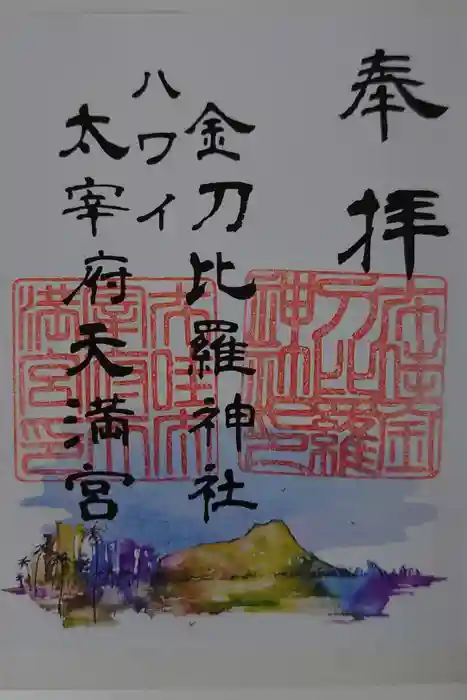 奉拝
ハワイ
金刀比羅神社
太宰府天満宮